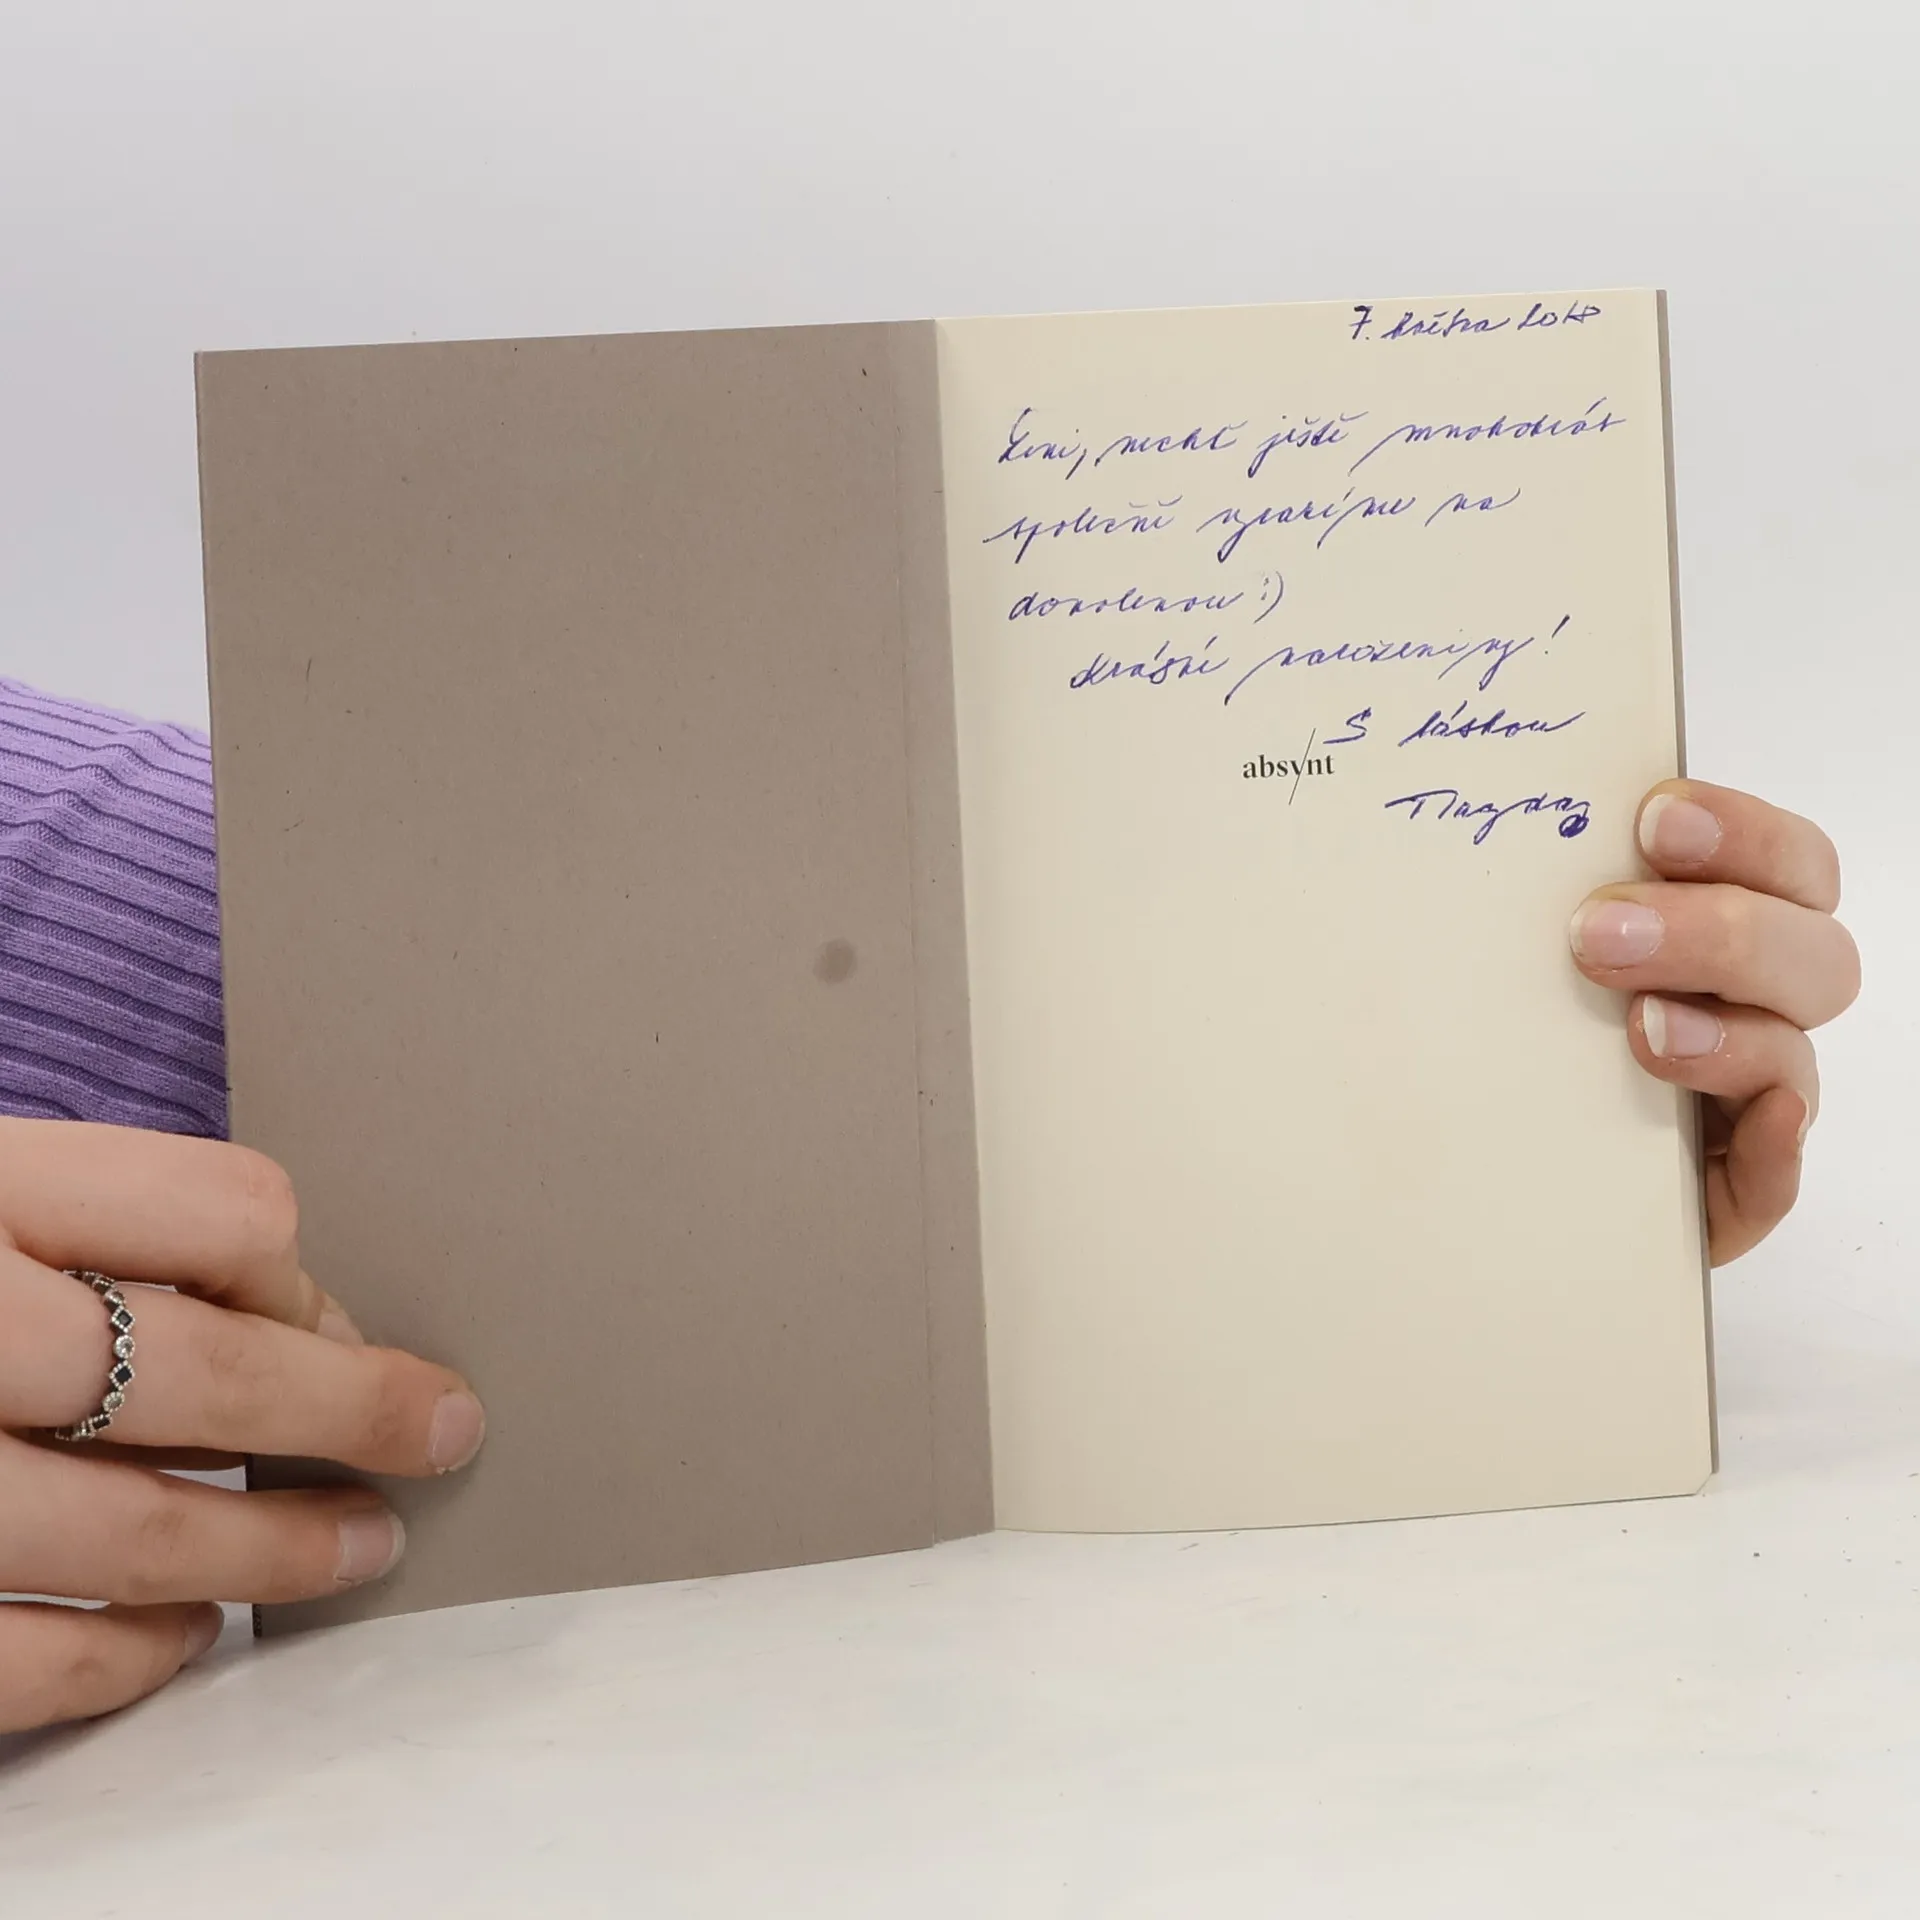 7. května 2018
Leni, nechť ještě mnohokrát
společně vyrazíme na
dovolenou :)
Krásné narozeniny!
S láskou
absynt
Magda